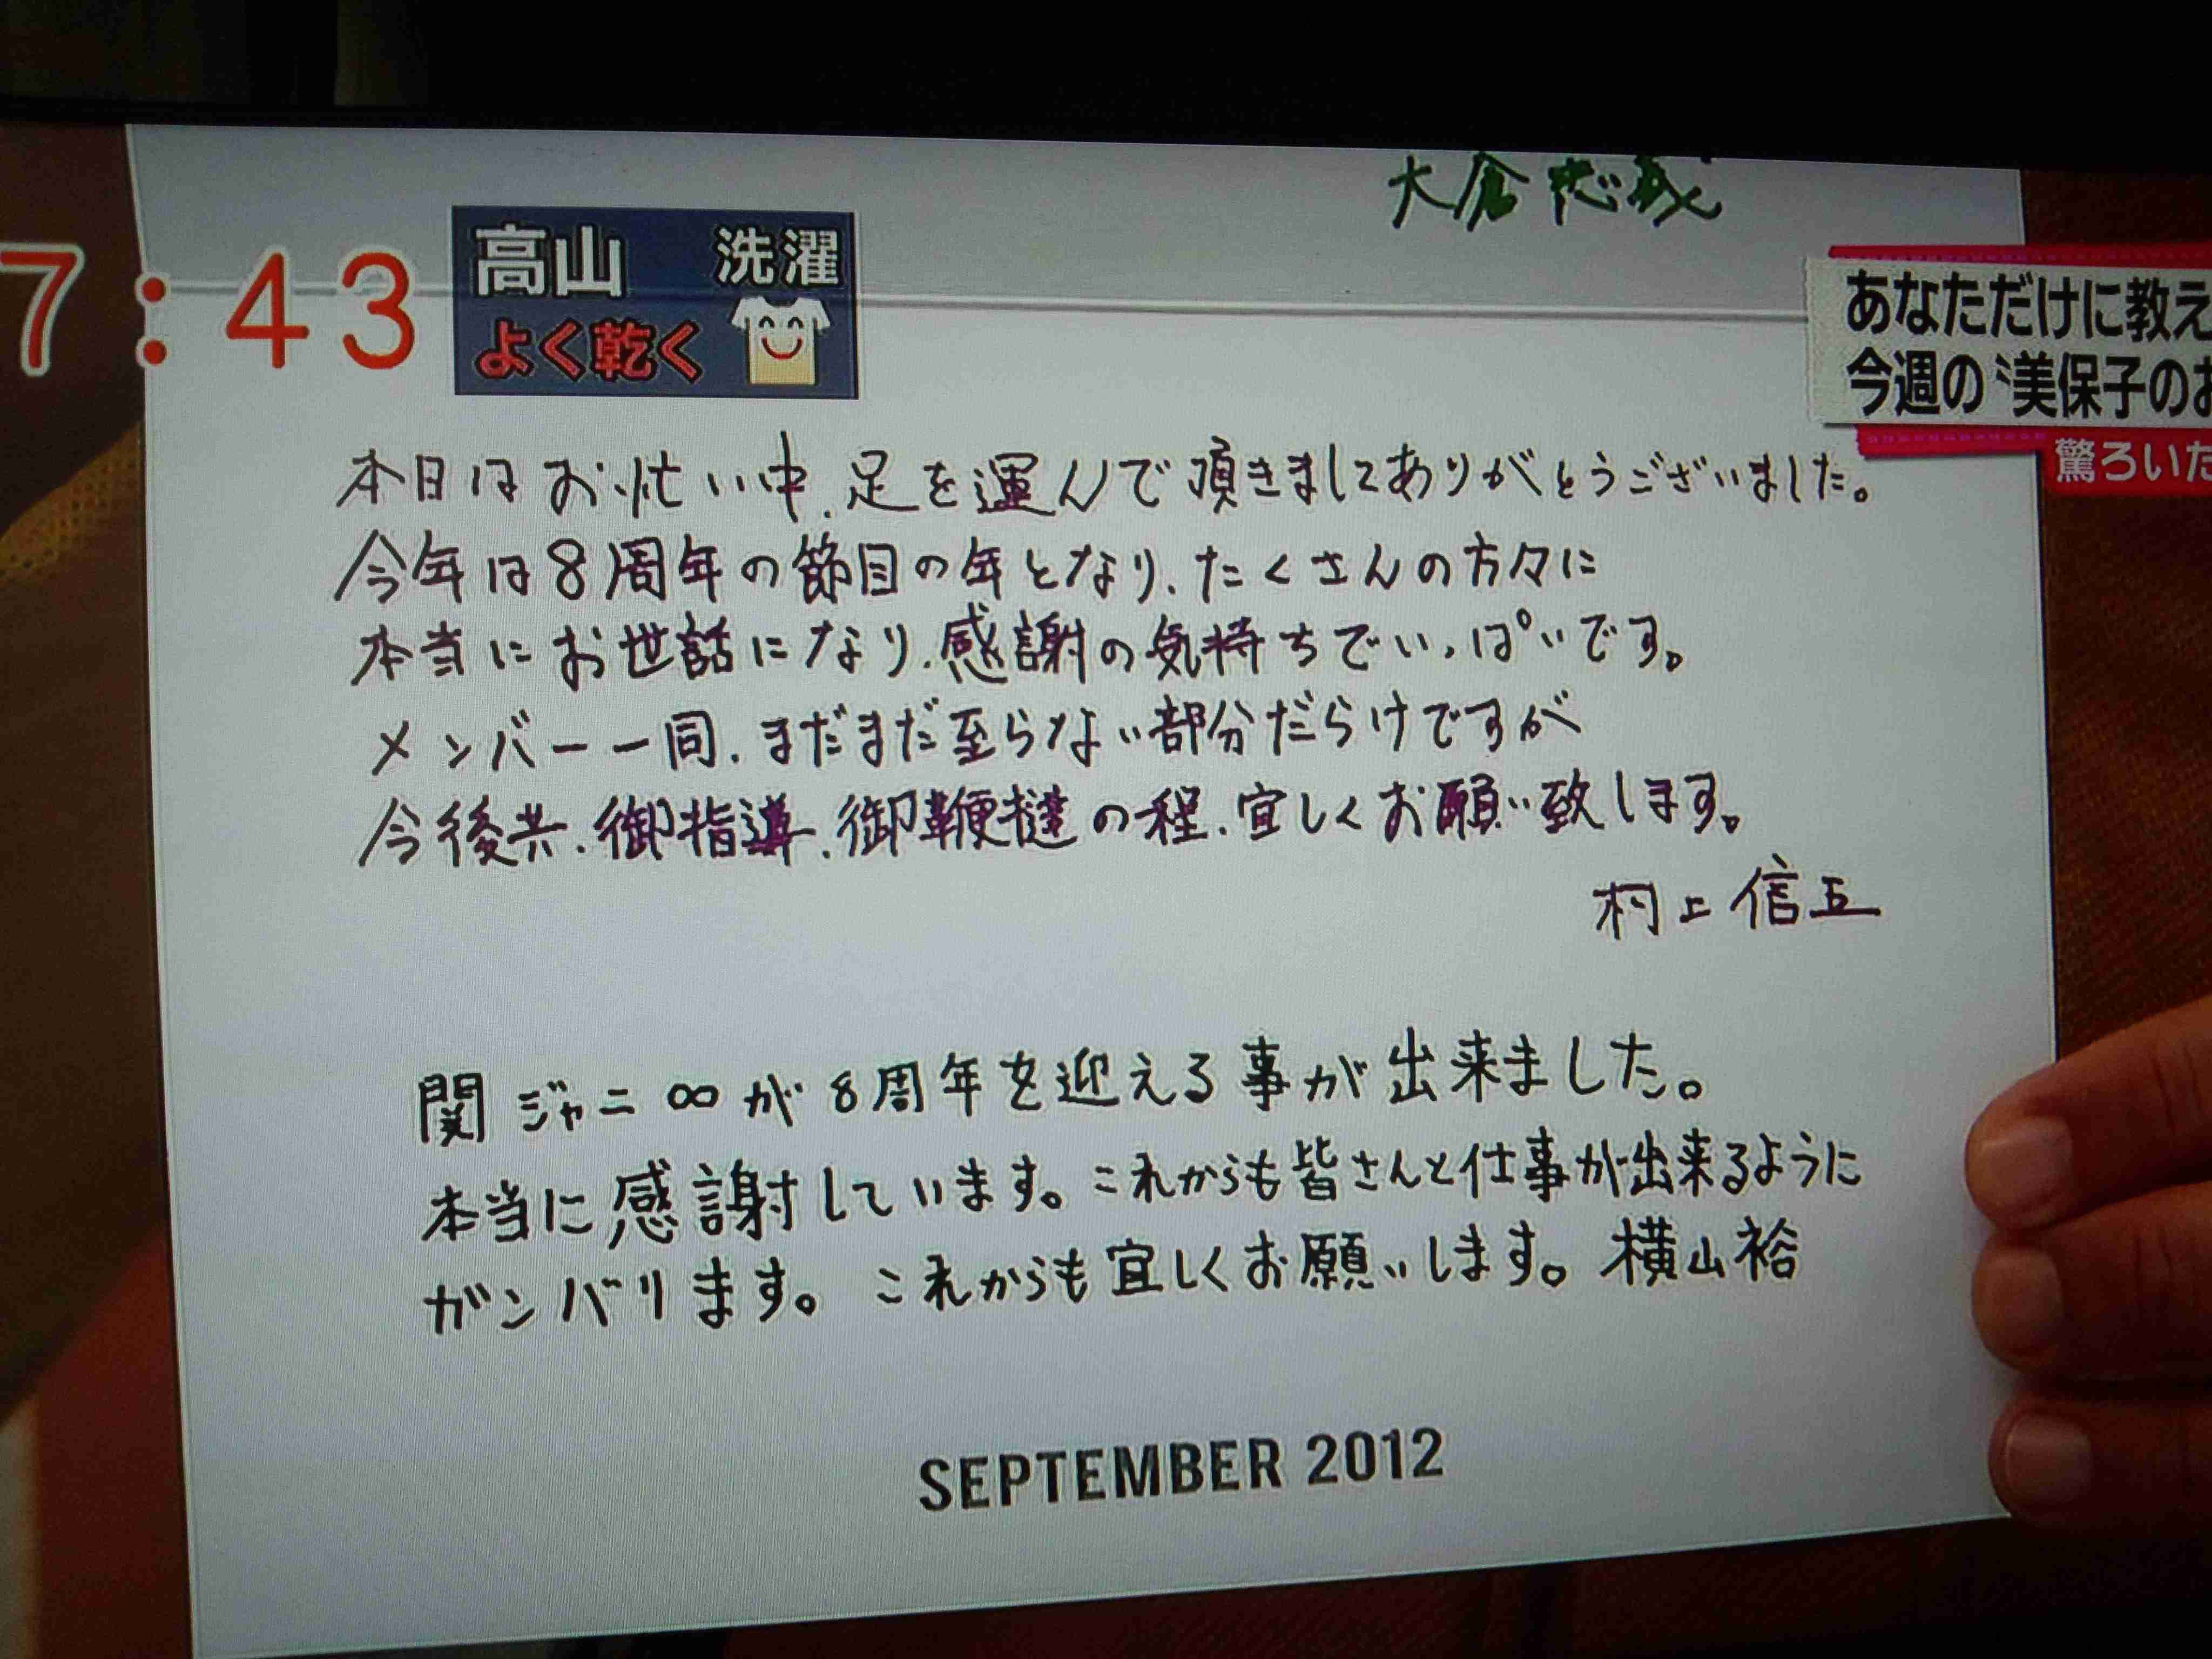 大倉忠義
7:43
高山 洗濯
よく乾く
あなただけに教え
今週の ミ美保子のお
驚ろいた
本日はお忙い中、足を運んで頂きましてありがとうございました。
今年は8周年の節目の年となり、たくさんの方々に
本当にお世話になり、感謝の気持ちでいっぱいです。
メンバー一同、まだまだ至らない部分だらけですが
今後共、御指導、御鞭撻の程、宜しくお願い致します。
村上信五
関ジャニ∞が8周年を迎える事が出来ました。
本当に感謝しています。これからも皆さんと仕事が出来るように
ガンバリます。これからも宜しくお願いします。横山裕
SEPTEMBER 2012